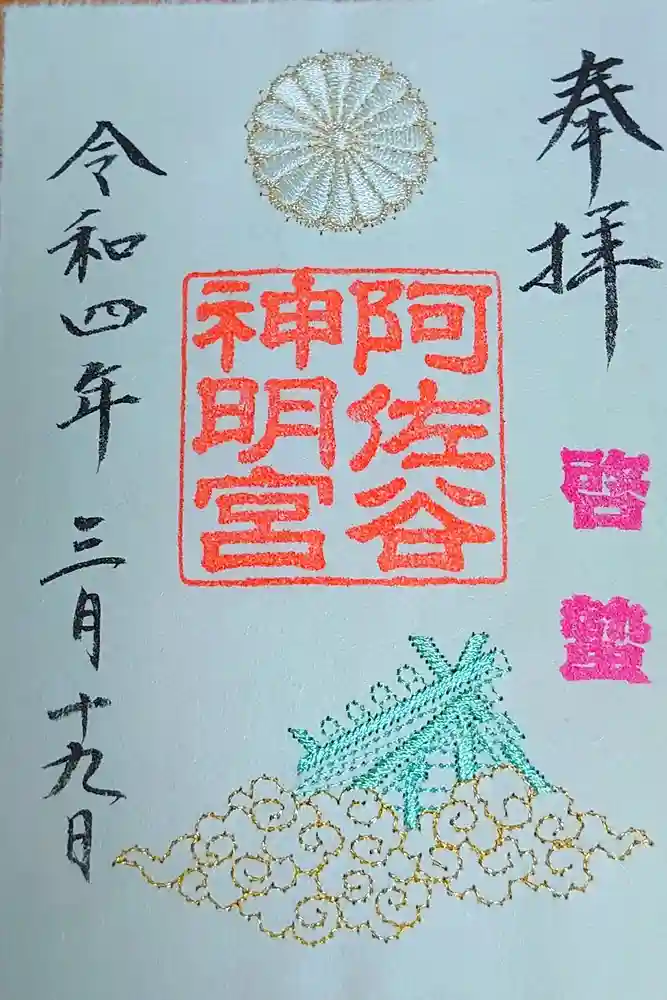 奉拝
啓蟄
阿佐谷
神明宮
令和四年三月十九日